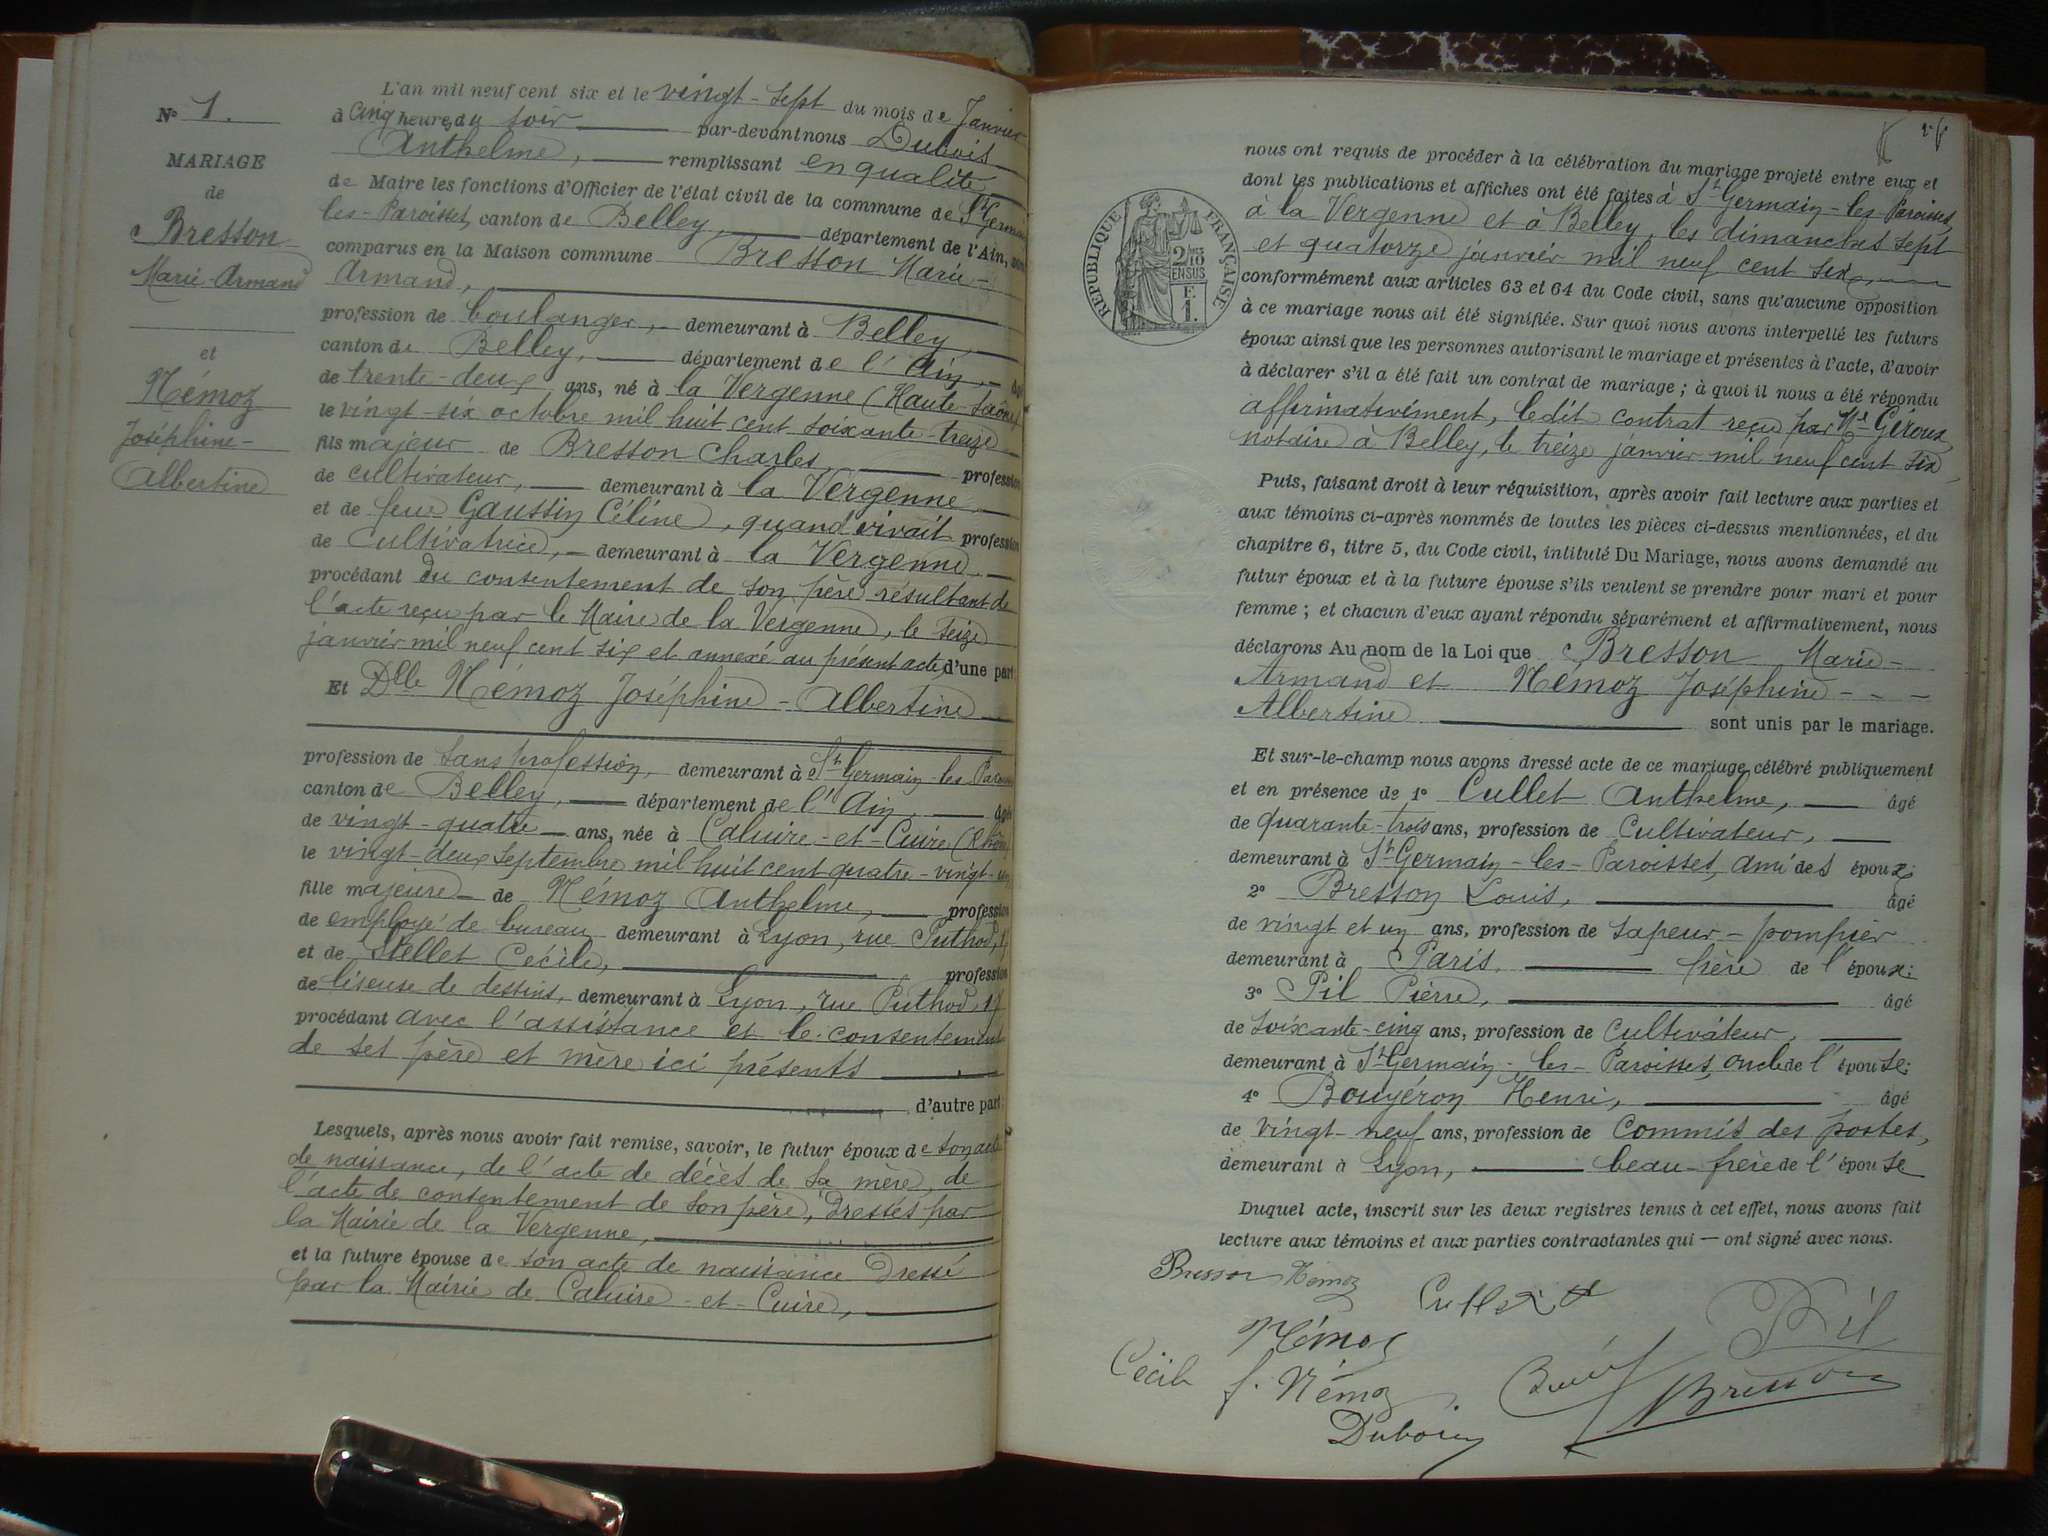 N° 1.
MARIAGE
de
Bresson
Marie-Armand
et
Némoz
Joséphine-
Albertine
L'an mil neuf cent six et le vingt-sept du mois de Janvier
à Cinq heures du soir par-devant nous Dubois
Anthelme, remplissant en qualité
de Maire les fonctions d'Officier de l'état civil de la commune de St Germain
les-Paroisses, canton de Belley, département de l'Ain, sont
comparus en la Maison commune Bresson Marie-
Armand,
profession de boulanger, demeurant à Belley,
canton de Belley, département de l'Ain, âgé
de trente-deux ans, né à la Vergenne (Haute-Saône)
le vingt-six octobre mil huit cent soixante-treize
fils majeur de Bresson Charles, profession
de cultivateur, demeurant à la Vergenne
et de feue Gaussin Céline, quand vivait profession
de Cultivatrice, demeurant à la Vergenne,
procédant du consentement de son père résultant de
l'acte reçu par le Maire de la Vergenne, le seize
janvier mil neuf cent six et annexé au présent acte, d'une part
Et Dlle Némoz Joséphine-Albertine
profession de Sans profession, demeurant à St Germain-les-Paroisses
canton de Belley, département de l'Ain, âgée
de vingt-quatre ans, née à Caluire-et-Cuire (Rhône)
le vingt-deux septembre mil huit cent quatre-vingt-un
fille majeure de Némoz Anthelme, profession
de employé de bureau demeurant à Lyon, rue Puthod, 17
et de Stellet Cécile, profession
de liseuse de dessins, demeurant à Lyon, rue Puthod, 17
procédant avec l'assistance et le consentement
de ses père et mère ici présents
d'autre part:
Lesquels, après nous avoir fait remise, savoir, le futur époux de son acte
de naissance, de l'acte de décès de sa mère, de
l'acte de consentement de son père, dressés par
la Mairie de la Vergenne,
et la future épouse de son acte de naissance dressé
par la Mairie de Caluire-et-Cuire,
nous ont requis de procéder à la célébration du mariage projeté entre eux et
dont les publications et affiches ont été faites à St Germain-les-Paroisses,
à la Vergenne et à Belley, les dimanches sept
et quatorze janvier mil neuf cent six,
conformément aux articles 63 et 64 du Code civil, sans qu'aucune opposition
à ce mariage nous ait été signifiée. Sur quoi nous avons interpellé les futurs
époux ainsi que les personnes autorisant le mariage et présentes à l'acte, d'avoir
à déclarer s'il a été fait un contrat de mariage; à quoi il nous a été répondu
affirmativement, ledit contrat reçu par Me Géroux,
notaire à Belley, le treize janvier mil neuf cent six
Puis, faisant droit à leur réquisition, après avoir fait lecture aux parties et
aux témoins ci-après nommés de toutes les pièces ci-dessus mentionnées, et du
chapitre 6, titre 5, du Code civil, intitulé Du Mariage, nous avons demandé au
futur époux et à la future épouse s'ils veulent se prendre pour mari et pour
femme; et chacun d'eux ayant répondu séparément et affirmativement, nous
déclarons Au nom de la Loi que Bresson Marie-
Armand et Némoz Joséphine-
Albertine sont unis par le mariage.
Et sur-le-champ nous avons dressé acte de ce mariage célébré publiquement
et en présence de 1° Cullet Anthelme, âgé
de quarante-trois ans, profession de Cultivateur,
demeurant à St Germain-les-Paroisses, ami des époux;
2° Bresson Louis, âgé
de vingt et un ans, profession de Sapeur-pompier
demeurant à Paris, frère de l'époux;
3° Pil Pierre, âgé
de Soixante-cinq ans, profession de Cultivateur,
demeurant à St Germain-les-Paroisses, oncle de l'épouse;
4° Bouyéron Henri, âgé
de Vingt-neuf ans, profession de Commis des postes,
demeurant à Lyon, beau-frère de l'épouse
Duquel acte, inscrit sur les deux registres tenus à cet effet, nous avons fait
lecture aux témoins et aux parties contractantes qui — ont signé avec nous.
REPUBLIQUE FRANÇAISE
2/10 EN SUS
F. 1.
Bresson Némoz
Cullet A
Némoz
Pil
Cécile
f. Némoz
Bresson
Dubois